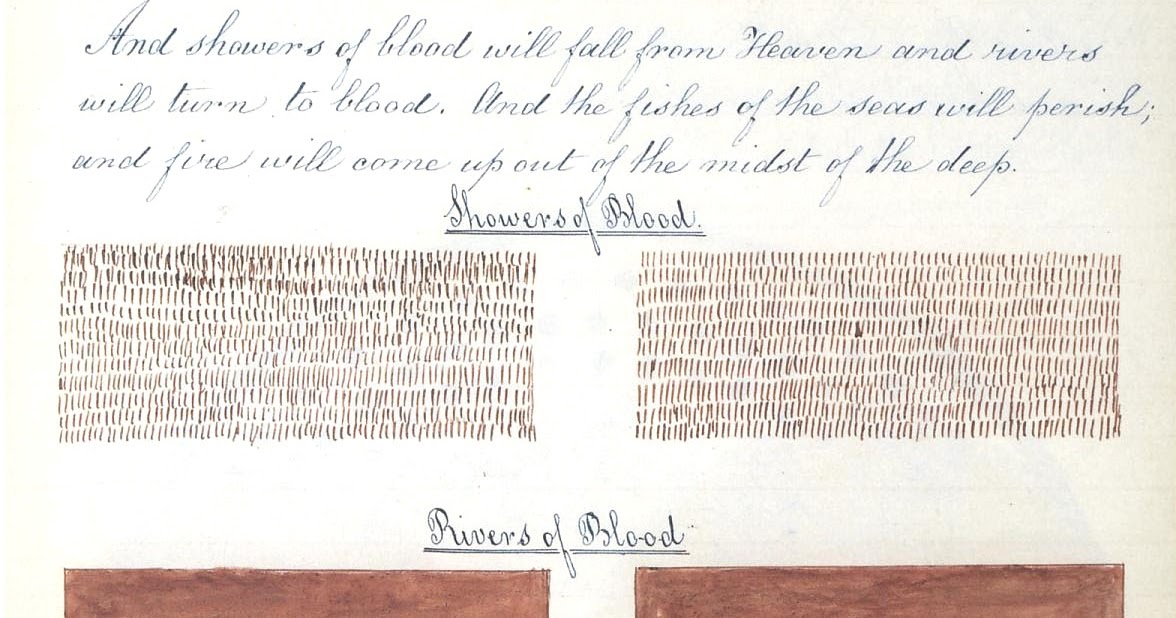 And showers of blood will fall from Heaven and rivers
will turn to blood. And the fishes of the seas will perish;
and fire will come up out of the midst of the deep.
Showers of Blood.
Rivers of Blood